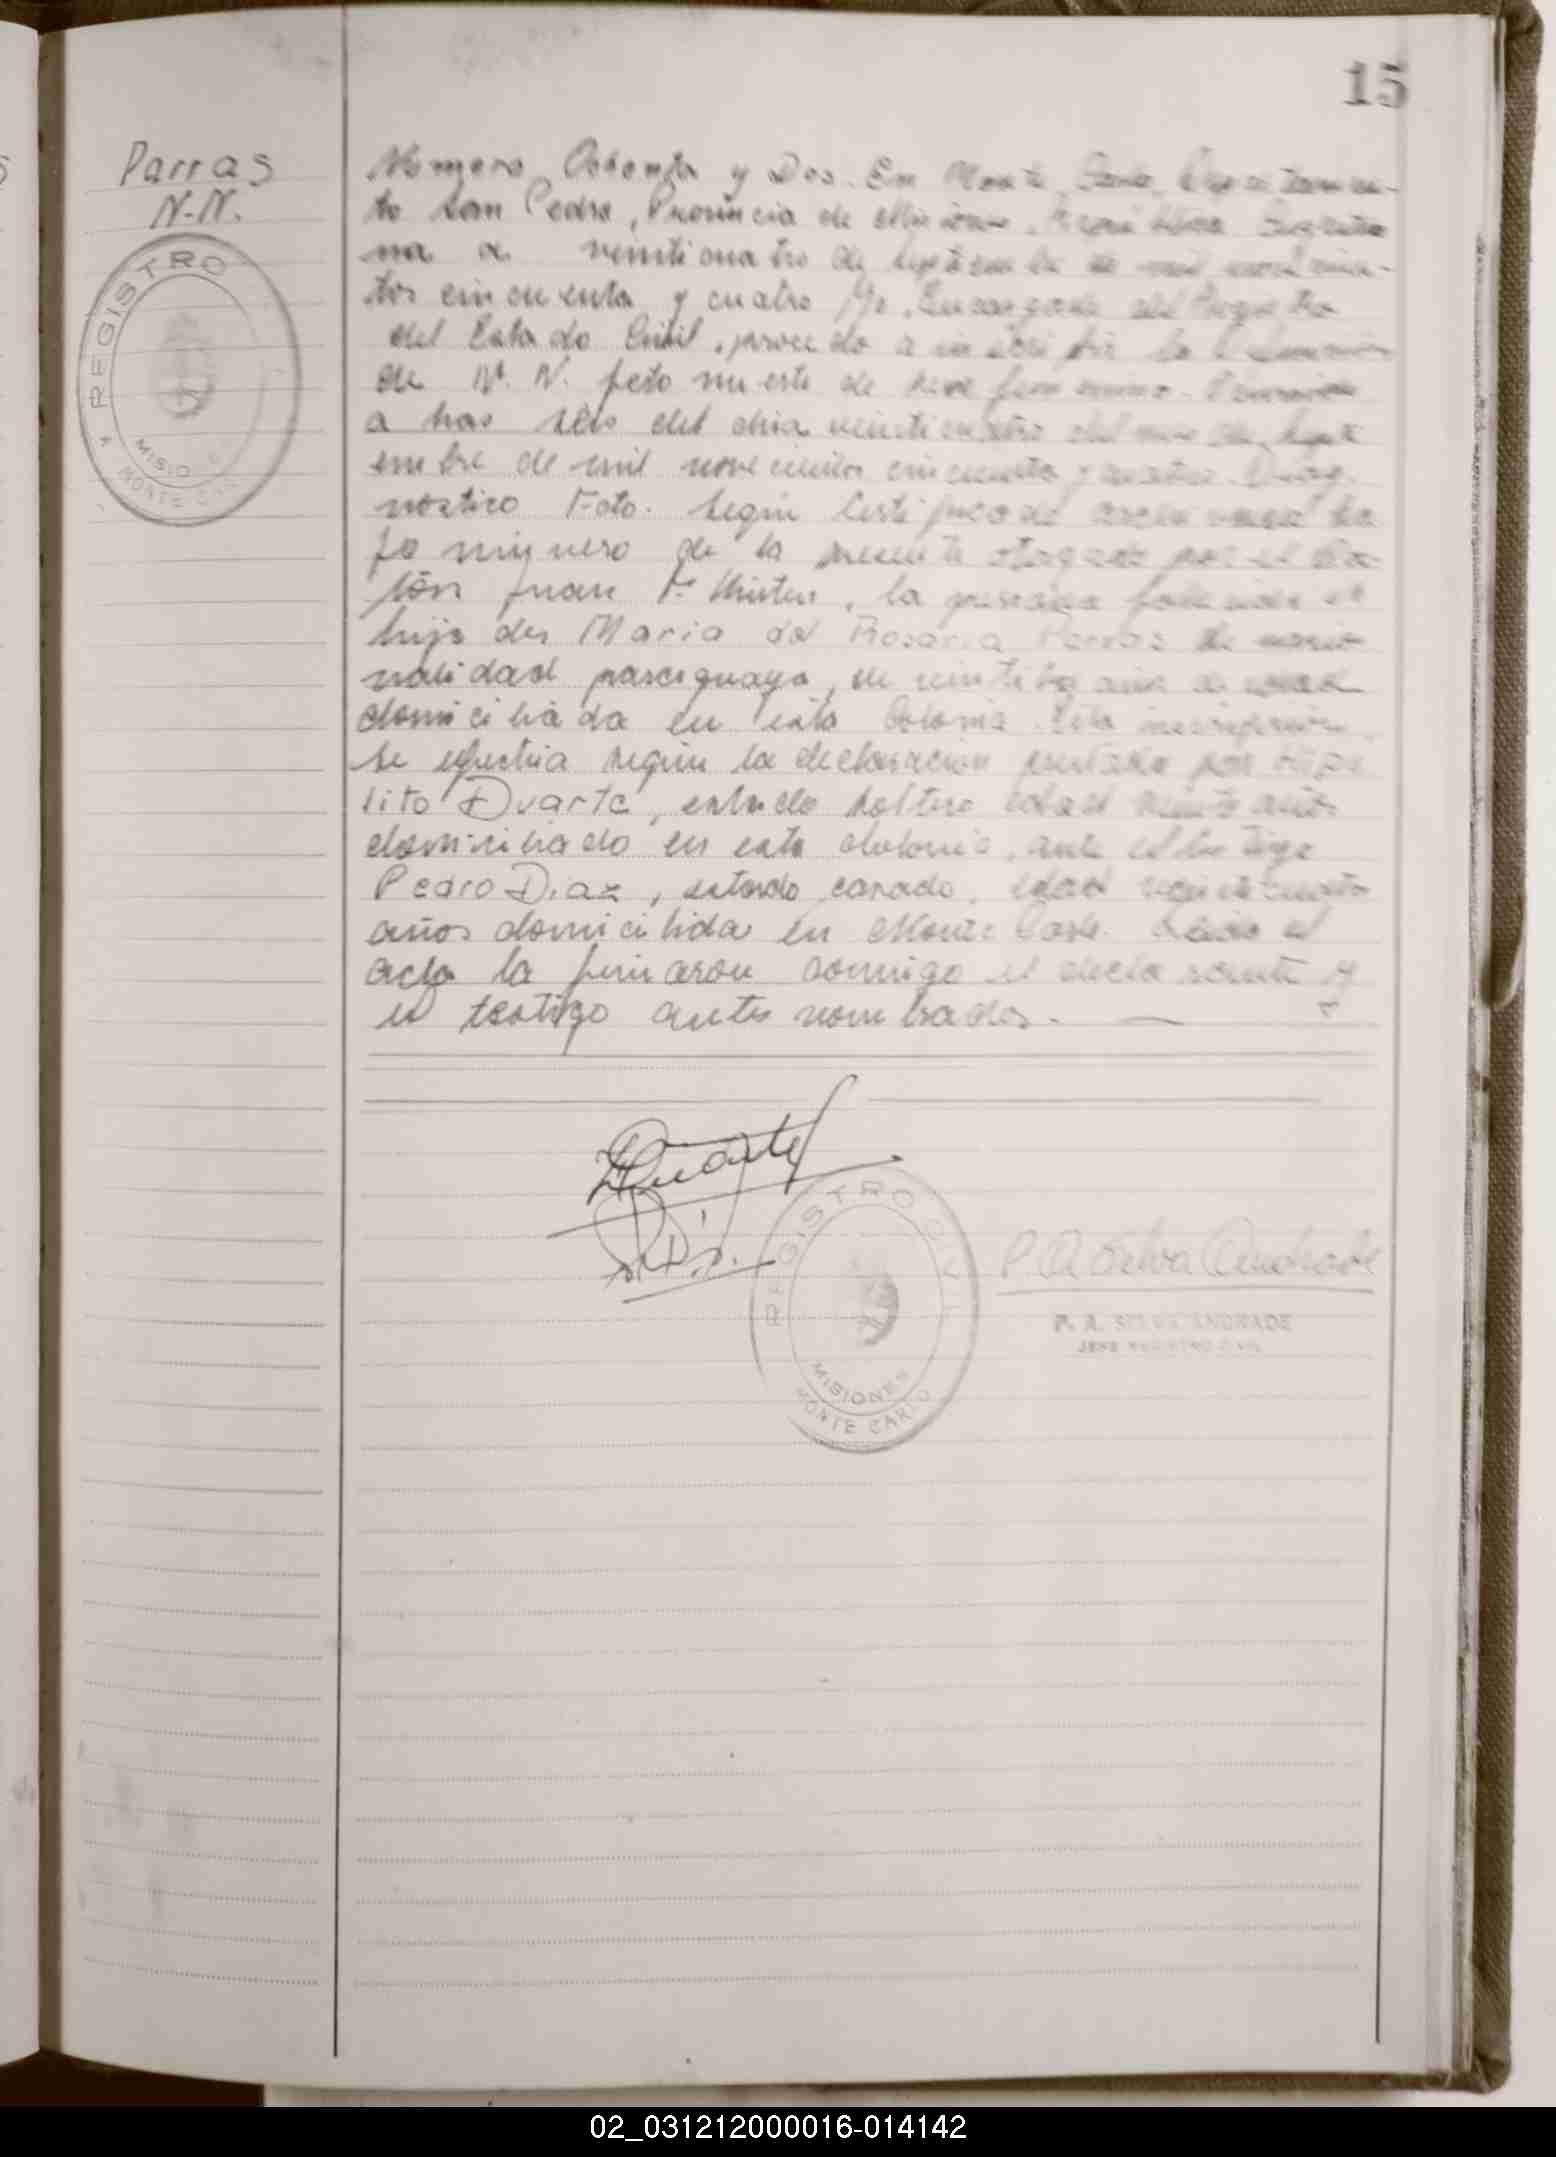 15
Parras
N.N.
REGISTRO
MISIO
MONTE CAR
Numero Ochenta y Dos. En Monte Carlo, Departamen-
to San Pedro, Provincia de Misiones, República Argenti
na a veinticuatro de Septiembre de mil novecien-
tos cincuenta y cuatro Yo, Encargado del Registro
del Estado Civil, procedo a inscribir la defunción
de N. N. feto muerto de sexo femenino.
a las seis del dia veinticuatro del mes de Septi
embre de mil novecientos cincuenta y cuatro. Diag
nostico Feto. Segun Certificado archivado ba
jo numero de la presente otorgado por el
Juan F. la
hija de Maria del Rosaria Parras de nacio
nalidad paraguaya, de años de edad
domiciliada en esta Colonia. Esta inscripción
se efectua segun la declaracion prestada por Hipo
lito Duarte, estado soltero edad veinte años
domiciliado en esta Colonia, ante el testigo
Pedro Diaz, estado casado, edad
años domicilida en Monte Carlo. Leido el
acta la firmaron conmigo el declarante y
el testigo antes nombrados.
HDuarte
P. Diaz
REGISTRO CIVIL
MISIONES
MONTE CARLO
P A Silva Andrade
P. A. SILVA ANDRADE
JEFE REGISTRO CIVIL
02_031212000016-014142